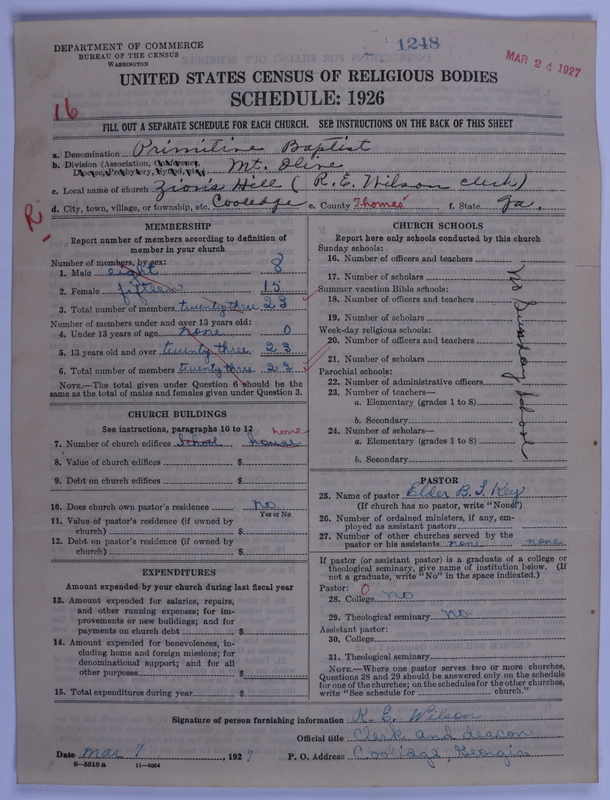 DEPARTMENT OF COMMERCE
BUREAU OF THE CENSUS
WASHINGTON
1248
MAR 24 1927
UNITED STATES CENSUS OF RELIGIOUS BODIES
SCHEDULE: 1926
16
FILL OUT A SEPARATE SCHEDULE FOR EACH CHURCH. SEE INSTRUCTIONS ON THE BACK OF THIS SHEET
a. Denomination Primitive Baptist
b. Division (Association, Conference, Mt. Olive
Diocese, Presbytery, Synod, etc.)
c. Local name of church Zion's Hill (R.E. Wilson clerk)
d. City, town, village, or township, etc. Cooledge e. County Thomas f. State Ga.
R
MEMBERSHIP
Report number of members according to definition of
member in your church
Number of members, by sex:
1. Male eight 8
2. Female fifteen 15
3. Total number of members twenty three 23
Number of members under and over 13 years old:
4. Under 13 years of age none 0
5. 13 years old and over twenty three 23
6. Total number of members twenty three 23
NOTE.—The total given under Question 6 should be the
same as the total of males and females given under Question 3.
CHURCH BUILDINGS
See instructions, paragraphs 10 to 12
none
7. Number of church edifices School house
8. Value of church edifices $
9. Debt on church edifices $
10. Does church own pastor's residence no
Yes or No
11. Value of pastor's residence (if owned by
church) $
12. Debt on pastor's residence (if owned by
church) $
EXPENDITURES
Amount expended by your church during last fiscal year
13. Amount expended for salaries, repairs,
and other running expenses; for im-
provements or new buildings; and for
payments on church debt $
14. Amount expended for benevolences, in-
cluding home and foreign missions; for
denominational support; and for all
other purposes $
15. Total expenditures during year $
CHURCH SCHOOLS
Report here only schools conducted by this church
Sunday schools:
16. Number of officers and teachers
17. Number of scholars
Summer vacation Bible schools:
18. Number of officers and teachers
19. Number of scholars
Week-day religious schools:
20. Number of officers and teachers
21. Number of scholars
Parochial schools:
22. Number of administrative officers
23. Number of teachers—
a. Elementary (grades 1 to 8)
b. Secondary
24. Number of scholars—
a. Elementary (grades 1 to 8)
b. Secondary
No Sunday School
PASTOR
25. Name of pastor Elder B. I. Key
(If church has no pastor, write "None")
26. Number of ordained ministers, if any, em-
ployed as assistant pastors
27. Number of other churches served by the
pastor or his assistants none none
If pastor (or assistant pastor) is a graduate of a college or
theological seminary, give name of institution below. (If
not a graduate, write "No" in the space indicated.)
Pastor: 0
28. College no
29. Theological seminary no.
Assistant pastor:
30. College
31. Theological seminary
NOTE.—Where one pastor serves two or more churches,
Questions 28 and 29 should be answered only on the schedule
for one of the churches; on the schedules for the other churches,
write "See schedule for church."
Signature of person furnishing information R. E. Wilson
Official title Clerk and deacon
Date Mar 7, 1927 P. O. Address Coolidge, Georgia
8—5518 a 11—9034